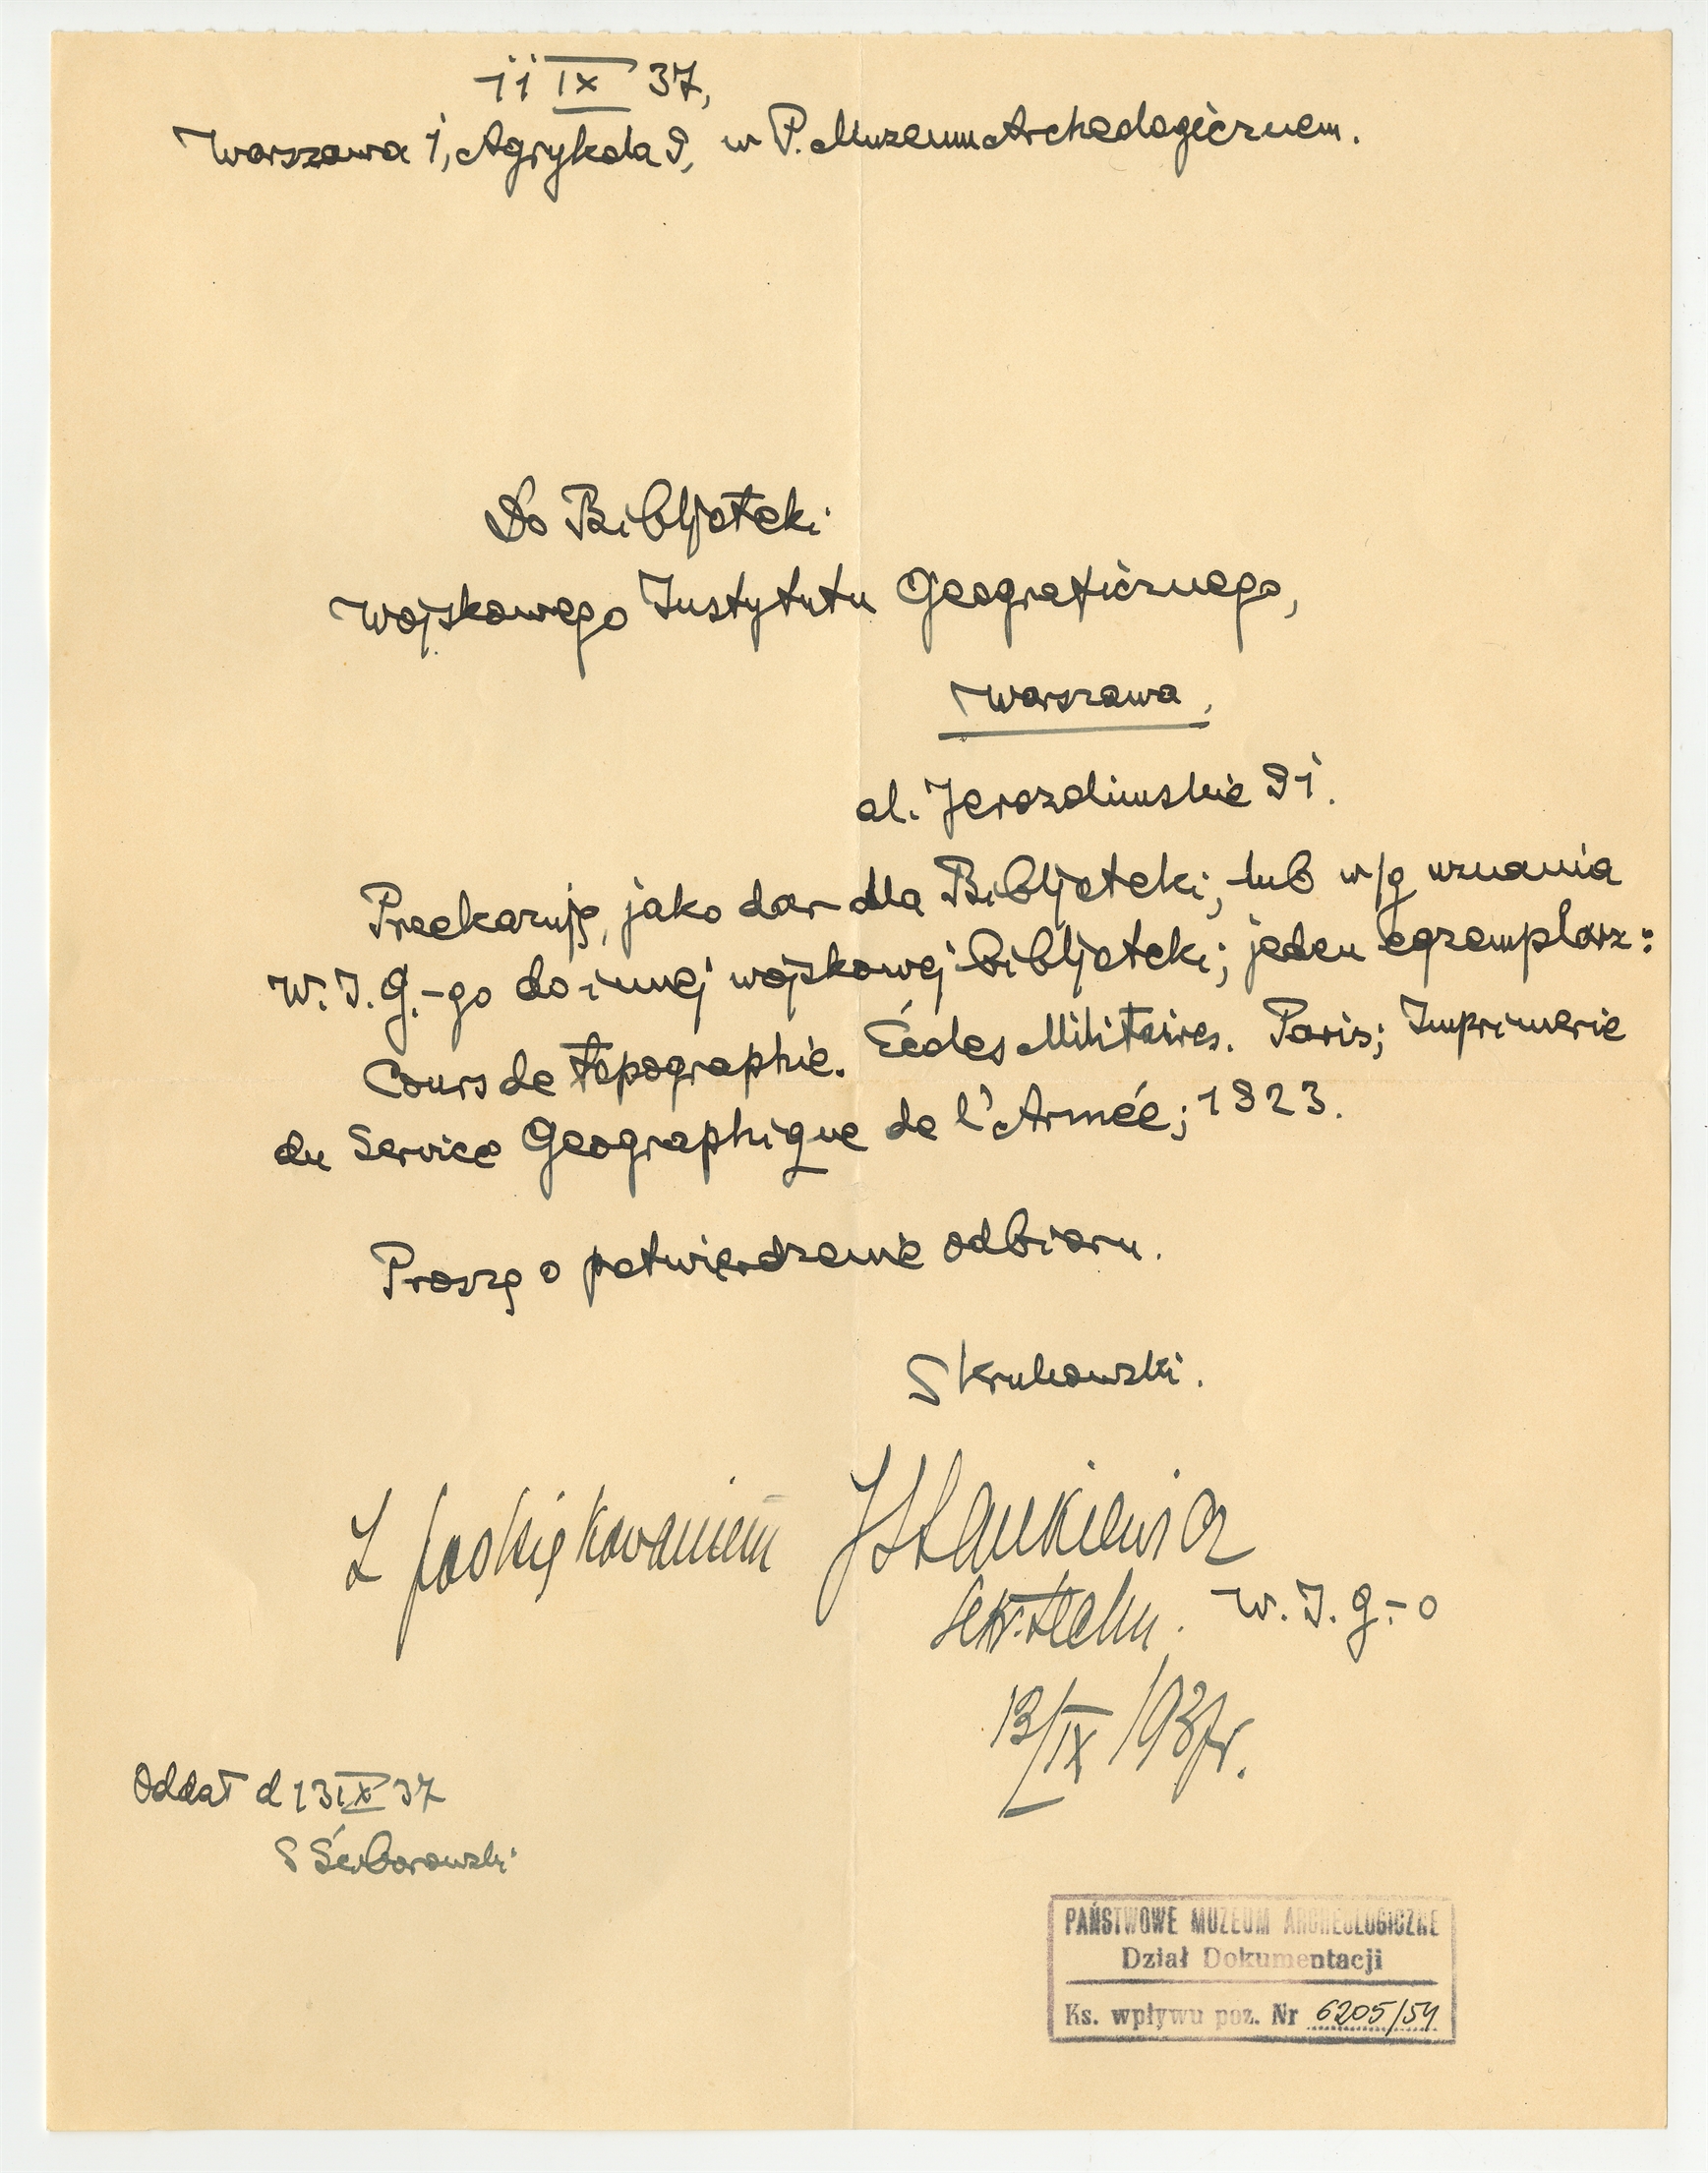 11 IX 37,
Warszawa 1, Agrykola 9, w P. Muzeum Archeologicznem.
Do Bibljoteki
Wojskowego Instytutu Geograficznego,
Warszawa,
al. Jerozolimskie 91.
Przekazuję, jako dar dla Bibljoteki; lub w/g uznania
W. I. G.-go do innej wojskowej bibljoteki; jeden egzemplarz:
Cours de topographie. Écoles Militaires. Paris; Imprimerie
du Service Geographique de l'Armée; 1923.
Proszę o potwierdzenie odbioru.
S Krukowski.
Z podziękowaniem JStankiewicz
Sekr. techn. W. I. G.-o
13/IX 1937r.
Oddał d 13 IX 37
S Ściborowski
PAŃSTWOWE MUZEUM ARCHEOLOGICZNE
Dział Dokumentacji
Ks. wpływu poz. Nr 6205/54